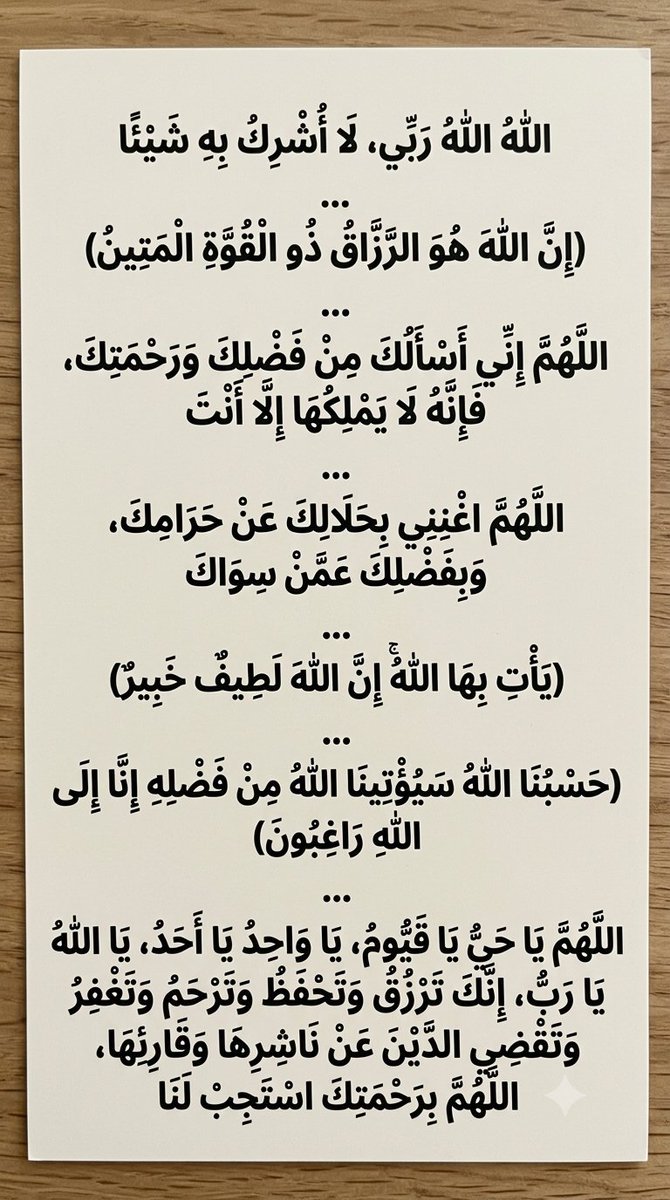 اللهُ اللهُ رَبِّي، لَا أُشْرِكُ بِهِ شَيْئًا
...
(إِنَّ اللهَ هُوَ الرَّزَّاقُ ذُو الْقُوَّةِ الْمَتِينُ)
...
اللَّهُمَّ إِنِّي أَسْأَلُكَ مِنْ فَضْلِكَ وَرَحْمَتِكَ،
فَإِنَّهُ لَا يَمْلِكُهَا إِلَّا أَنْتَ
...
اللَّهُمَّ اغْنِنِي بِحَلَالِكَ عَنْ حَرَامِكَ،
وَبِفَضْلِكَ عَمَّنْ سِوَاكَ
...
(يَأْتِ بِهَا اللهُ ۚ إِنَّ اللهَ لَطِيفٌ خَبِيرٌ)
...
(حَسْبُنَا اللهُ سَيُؤْتِينَا اللهُ مِنْ فَضْلِهِ إِنَّا إِلَى
اللهِ رَاغِبُونَ)
...
اللَّهُمَّ يَا حَيُّ يَا قَيُّومُ، يَا وَاحِدُ يَا أَحَدُ، يَا اللهُ
يَا رَبُّ، إِنَّكَ تَرْزُقُ وَتَحْفَظُ وَتَرْحَمُ وَتَغْفِرُ
وَتَقْضِي الدَّيْنَ عَنْ نَاشِرِهَا وَقَارِئِهَا،
اللَّهُمَّ بِرَحْمَتِكَ اسْتَجِبْ لَنَا